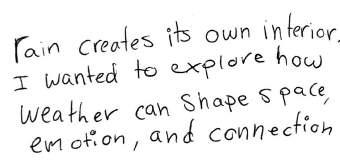 rain creates its own interior.
I wanted to explore how
weather can shape space,
emotion, and connection